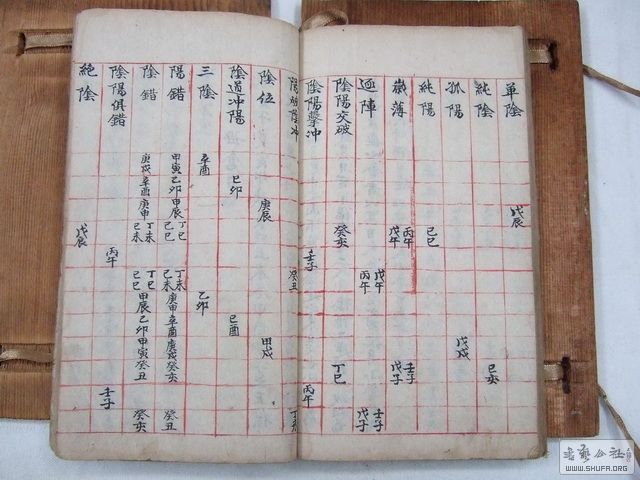 單陰 戊辰
純陰 己亥
孤陽 戊戌
純陽 己巳
歲薄 丙午 戊午 壬子 戊子
逐陣 戊午 丙午 壬子 戊子
陰陽交破 癸亥 丁巳
陰陽擊冲 壬子 丙午
陽破陰冲 癸丑 丁未
陰位 庚辰 甲戌
陰道冲陽 己卯 己酉
三陰 辛酉 乙卯
陽錯 甲寅 乙卯 甲辰 丁巳 己巳 丁未 己未 庚申 辛酉 庚戌 癸亥 癸丑
陰錯 庚戌 辛酉 庚申 丁未 己未 丁巳 己巳 甲辰 乙卯 甲寅 癸丑 癸亥
陰陽俱錯 丙午 壬子
絶陰 戊辰
書藝公社
WWW.SHUFA.ORG